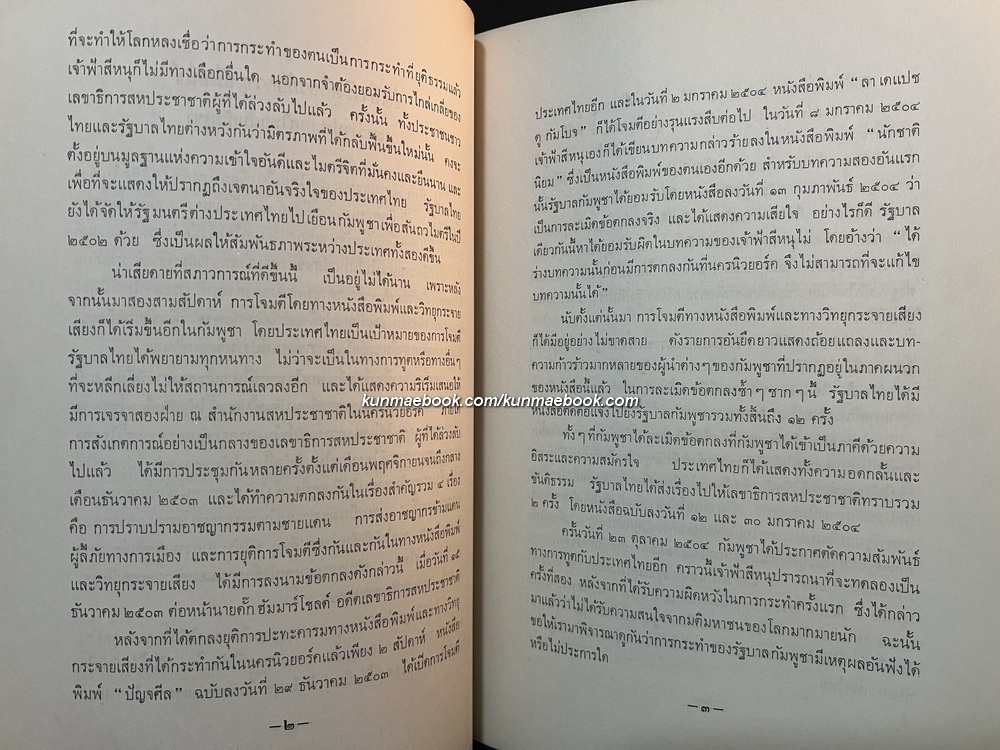 ที่จะทำให้โลกหลงเชื่อว่าการกระทำของตนเป็นการกระทำที่ยุติธรรมแล้ว
เจ้าฟ้าสีหนุก็ไม่มีทางเลือกอื่นใด นอกจากจำต้องยอมรับการไกล่เกลี่ยของ
เลขาธิการสหประชาชาติผู้ที่ได้ล่วงลับไปแล้ว ครั้งนั้น ทั้งประชาชนชาว
ไทยและรัฐบาลไทยต่างหวังกันว่ามิตรภาพที่ได้กลับฟื้นขึ้นใหม่นั้น คงจะ
ตั้งอยู่บนมูลฐานแห่งความเข้าใจอันดีและไมตรีจิตที่มั่นคงและยืนนาน และ
เพื่อที่จะแสดงให้ปรากฏถึงเจตนาอันจริงใจของประเทศไทย รัฐบาลไทย
ยังได้จัดให้รัฐมนตรีต่างประเทศไทยไปเยือนกัมพูชาเพื่อสันถวไมตรีในปี
๒๕๐๒ ด้วย ซึ่งเป็นผลให้สัมพันธภาพระหว่างประเทศทั้งสองดีขึ้น
น่าเสียดายที่สภาวการณ์ที่ดีขึ้นนี้ เป็นอยู่ไม่ได้นาน เพราะหลัง
จากนั้นมาสองสามสัปดาห์ การโจมตีโดยทางหนังสือพิมพ์และวิทยุกระจาย
เสียงก็ได้เริ่มขึ้นอีกในกัมพูชา โดยประเทศไทยเป็นเป้าหมายของการโจมตี
รัฐบาลไทยได้พยายามทุกหนทาง ไม่ว่าจะเป็นในทางการทูตหรือทางอื่นๆ
ที่จะหลีกเลี่ยงไม่ให้สถานการณ์เลวลงอีก และได้แสดงความริเริ่มเสนอให้
มีการเจรจาสองฝ่าย ณ สำนักงานสหประชาชาติในนครนิวยอร์ค ภายใต้
การสังเกตการณ์อย่างเป็นกลางของเลขาธิการสหประชาชาติ ผู้ที่ได้ล่วงลับ
ไปแล้ว ได้มีการประชุมกันหลายครั้งตั้งแต่เดือนพฤศจิกายนจนถึงกลาง
เดือนธันวาคม ๒๕๐๓ และได้ทำความตกลงกันในเรื่องสำคัญรวม ๔ เรื่อง
คือ การปราบปรามอาชญากรรมตามชายแดน การส่งอาชญากรข้ามแดน
ผู้ลี้ภัยทางการเมือง และการยุติการโจมตีซึ่งกันและกันในทางหนังสือพิมพ์
และวิทยุกระจายเสียง ได้มีการลงนามข้อตกลงดังกล่าวนี้ เมื่อวันที่ ๑๕
ธันวาคม ๒๕๐๓ ต่อหน้านายดั๊ก ฮัมมาร์โชลด์ อดีตเลขาธิการสหประชาชาติ
หลังจากที่ได้ตกลงยุติการปะทะคารมทางหนังสือพิมพ์และทางวิทยุ
กระจายเสียงที่ได้กระทำกันในนครนิวยอร์คแล้วเพียง ๒ สัปดาห์ หนังสือ
พิมพ์ “ปัญจศีล” ฉบับลงวันที่ ๒๙ ธันวาคม ๒๕๐๓ ได้เปิดการโจมตี
—๒—
ประเทศไทยอีก และในวันที่ ๒ มกราคม ๒๕๐๔ หนังสือพิมพ์ “ลา เดแปช
ดู กัมโบจ” ก็ได้โจมตีอย่างรุนแรงสืบต่อไป ในวันที่ ๘ มกราคม ๒๕๐๔
เจ้าฟ้าสีหนุเองก็ได้เขียนบทความกล่าวร้ายลงในหนังสือพิมพ์ “นักชาติ
นิยม” ซึ่งเป็นหนังสือพิมพ์ของตนเองอีกด้วย สำหรับบทความสองอันแรก
นั้นรัฐบาลกัมพูชาได้ยอมรับโดยหนังสือลงวันที่ ๑๓ กุมภาพันธ์ ๒๕๐๔ ว่า
เป็นการละเมิดข้อตกลงจริง และได้แสดงความเสียใจ อย่างไรก็ดี รัฐบาล
เดียวกันนี้หาได้ยอมรับผิดในบทความของเจ้าฟ้าสีหนุไม่ โดยอ้างว่า “ได้
ร่างบทความนั้นก่อนมีการตกลงกันที่นครนิวยอร์ค จึงไม่สามารถที่จะแก้ไข
บทความนั้นได้”
นับตั้งแต่นั้นมา การโจมตีทางหนังสือพิมพ์และทางวิทยุกระจายเสียง
ก็ได้มีอยู่อย่างไม่ขาดสาย ดังรายการอันยืดยาวแสดงถ้อยแถลงและบท-
ความก้าวร้าวมากหลายของผู้นำต่างๆของกัมพูชาที่ปรากฏอยู่ในภาคผนวก
ของหนังสือนี้แล้ว ในการละเมิดข้อตกลงซ้ำๆซากๆนี้ รัฐบาลไทยได้มี
kunmaebook.com/kunmaebook.com
หนังสือติดต่อแจ้งไปยังรัฐบาลกัมพูชารวมทั้งสิ้นถึง ๑๒ ครั้ง
ทั้งๆที่กัมพูชาได้ละเมิดข้อตกลงที่กัมพูชาได้เข้าเป็นภาคีด้วยความ
อิสระและความสมัครใจ ประเทศไทยก็ได้แสดงทั้งความอดกลั้นและ
ขันติธรรม รัฐบาลไทยได้ส่งเรื่องไปให้เลขาธิการสหประชาชาติทราบรวม
๒ ครั้ง โดยหนังสือฉบับลงวันที่ ๑๒ และ ๓๐ มกราคม ๒๕๐๔
ครั้นวันที่ ๒๓ ตุลาคม ๒๕๐๔ กัมพูชาได้ประกาศตัดความสัมพันธ์
ทางการทูตกับประเทศไทยอีก คราวนี้เจ้าฟ้าสีหนุปรารถนาที่จะทดลองเป็น
ครั้งที่สอง หลังจากที่ได้รับความผิดหวังในการกระทำครั้งแรก ซึ่งได้กล่าว
มาแล้วว่าไม่ได้รับความสนใจจากมติมหาชนของโลกมากมายนัก ฉะนั้น
ขอให้เรามาพิจารณาดูกันว่าการกระทำของรัฐบาลกัมพูชามีเหตุผลอันฟังได้
หรือไม่ประการใด
—๓—